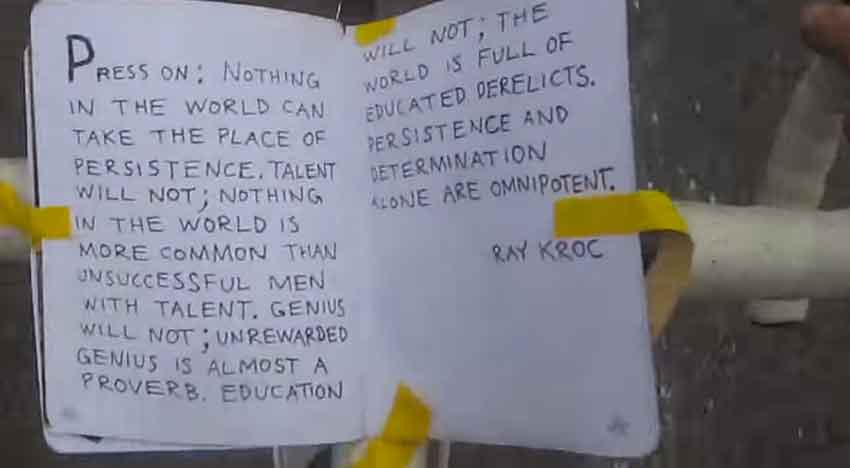 PRESS ON: NOTHING
IN THE WORLD CAN
TAKE THE PLACE OF
PERSISTENCE. TALENT
WILL NOT; NOTHING
IN THE WORLD IS
MORE COMMON THAN
UNSUCCESSFUL MEN
WITH TALENT. GENIUS
WILL NOT; UNREWARDED
GENIUS IS ALMOST A
PROVERB. EDUCATION
WILL NOT; THE
WORLD IS FULL OF
EDUCATED DERELICTS.
PERSISTENCE AND
DETERMINATION
ALONE ARE OMNIPOTENT.
RAY KROC